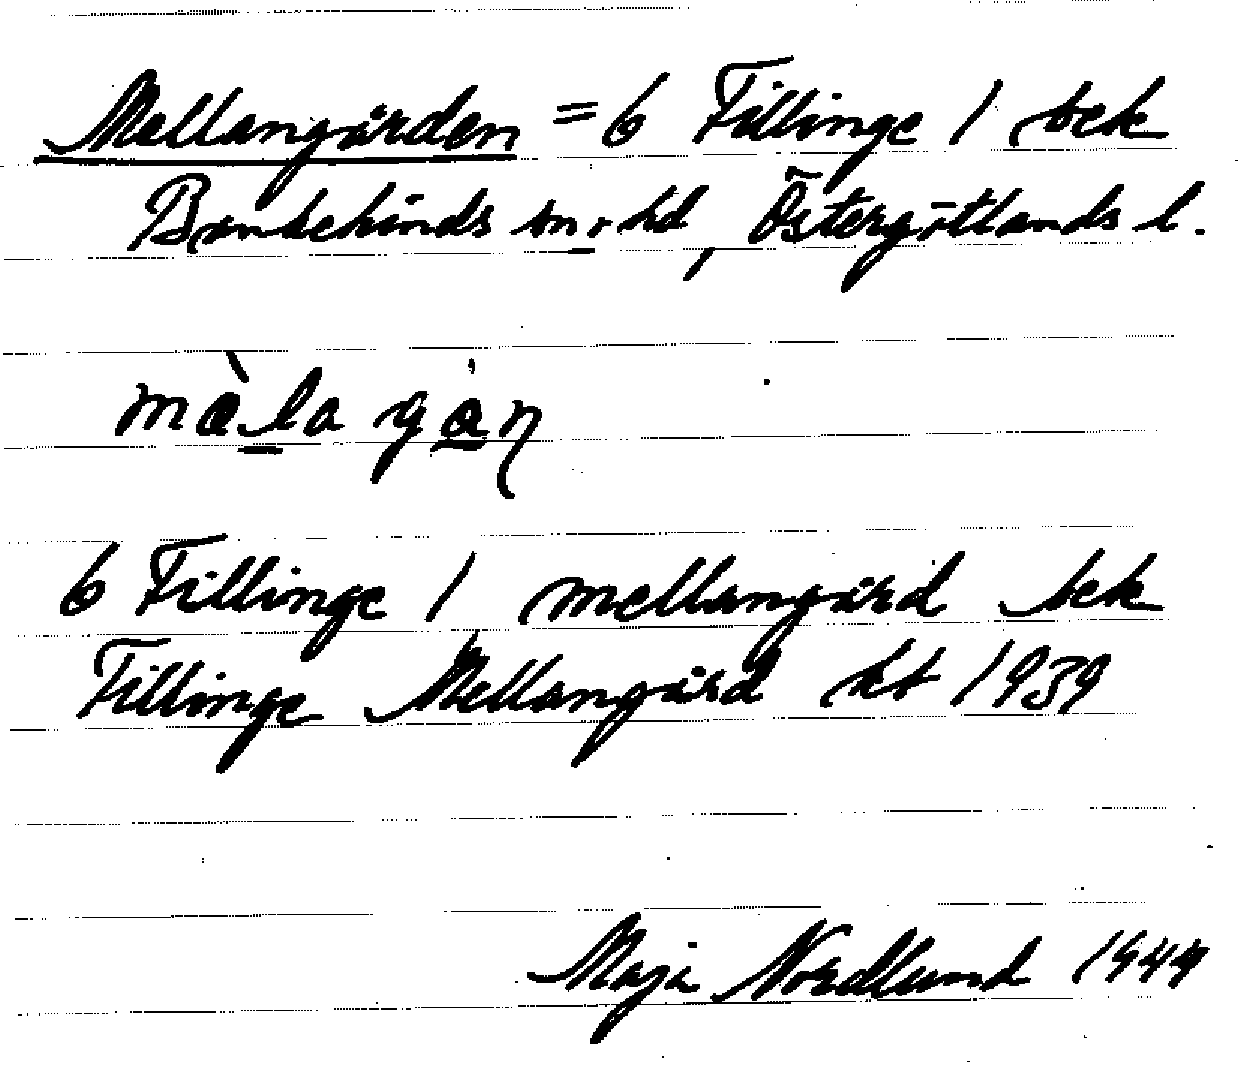 Mellangården = 6 Fillinge 1 bek
Bankekinds sn o hd, Östergötlands l.
6 Fillinge 1 mellangård bek
Fillinge Mellangård kt 1939
Maja Nordlund 1944